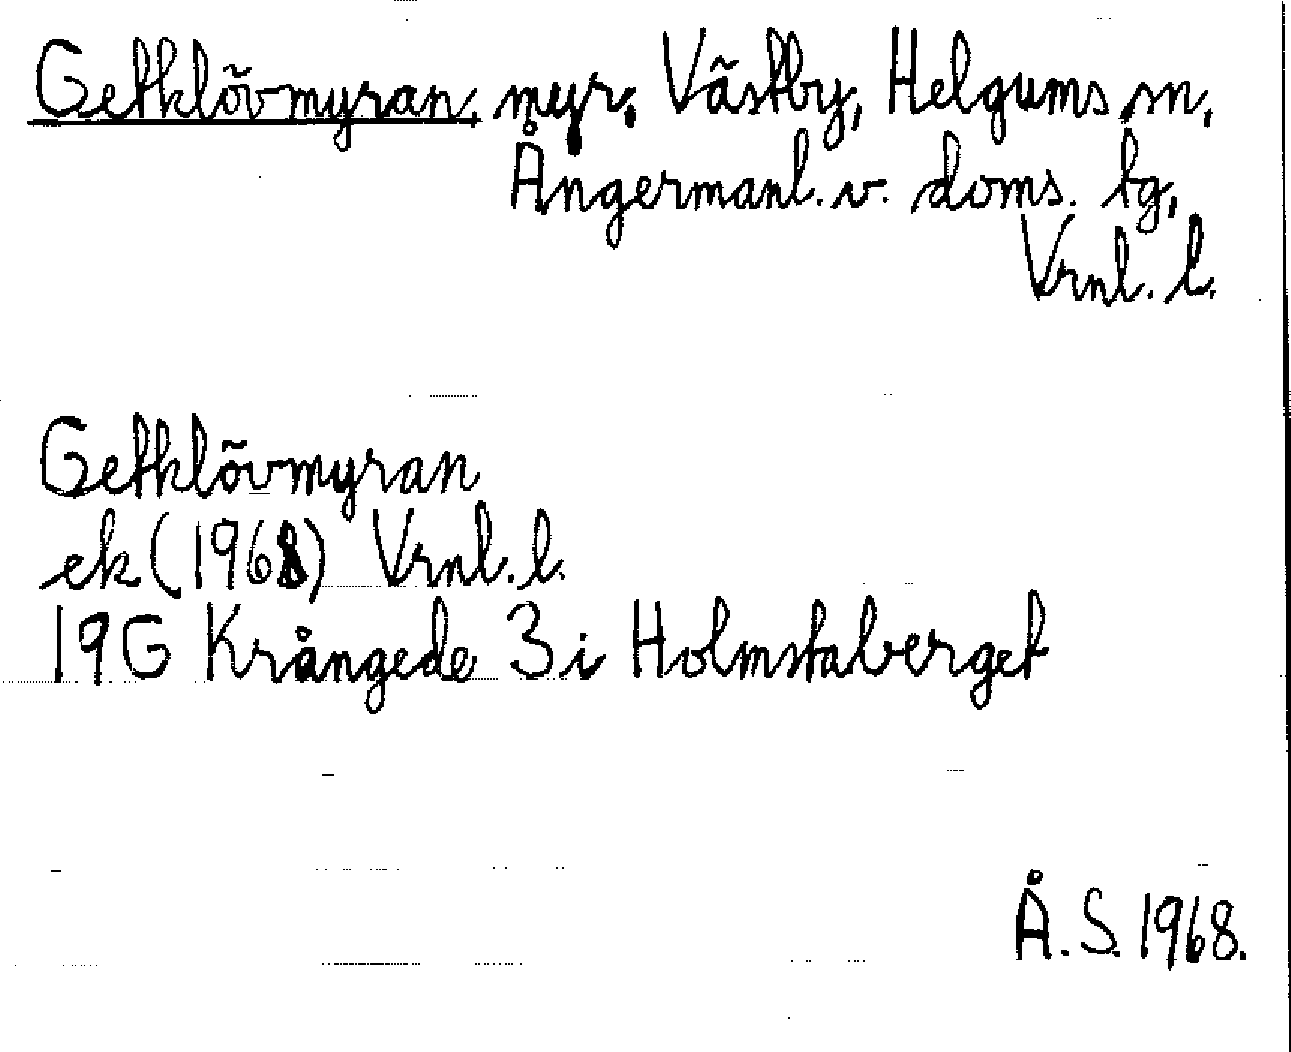 Getklövmyran, myr, Västby, Helgums sn,
Ångermanl. v. doms. tg,
Vrnl. l.
Getklövmyran
ek (1961) Vrnl. l.
19G Krångede 3i Holmstaberget
Å. S. 1968.